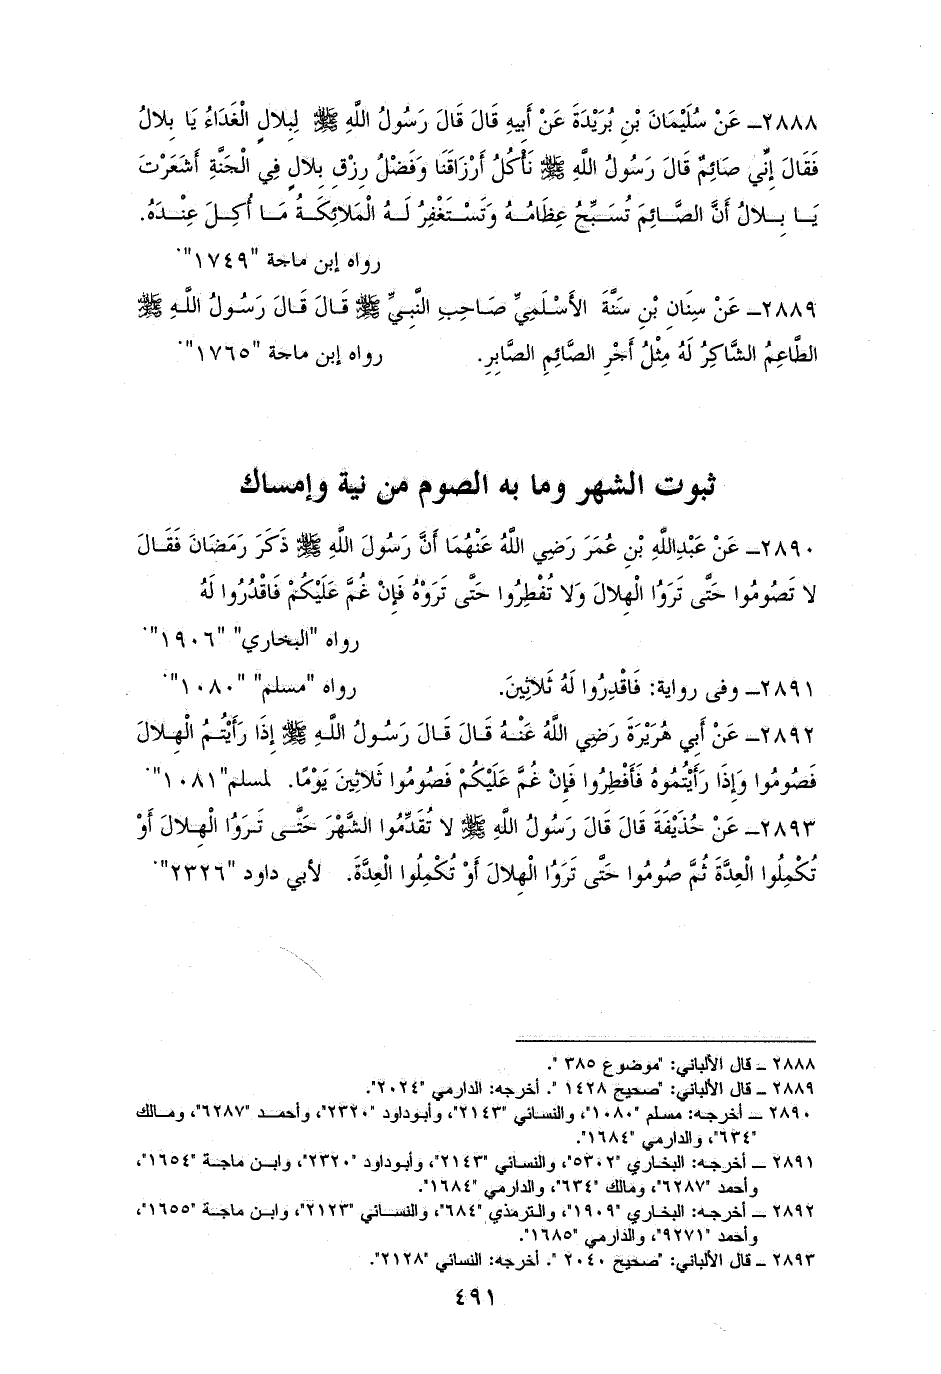 ٢٨٨٨ـ عَنْ سُلَيْمَانَ بْنِ بُرَيْدَةَ عَنْ أَبِيهِ قَالَ قَالَ رَسُولُ اللَّهِ ﷺ لِبِلالٍ الْغَدَاءُ يَا بِلالُ
فَقَالَ إِنِّي صَائِمٌ قَالَ رَسُولُ اللَّهِ ﷺ نَأْكُلُ أَرْزَاقَنَا وَفَضْلُ رِزْقِ بِلالٍ فِي الْجَنَّةِ أَشَعَرْتَ
يَا بِلالُ أَنَّ الصَّائِمَ تُسَبِّحُ عِظَامُهُ وَتَسْتَغْفِرُ لَهُ الْمَلائِكَةُ مَا أُكِلَ عِنْدَهُ.
رواه إبن ماجة "١٧٤٩".
٢٨٨٩ـ عَنْ سِنَانِ بْنِ سَنَّةَ الأَسْلَمِيِّ صَاحِبِ النَّبِيِّ ﷺ قَالَ قَالَ رَسُولُ اللَّهِ ﷺ
الطَّاعِمُ الشَّاكِرُ لَهُ مِثْلُ أَجْرِ الصَّائِمِ الصَّابِرِ. رواه إبن ماجة "١٧٦٥".
ثبوت الشهر وما به الصوم من نية وإمساك
٢٨٩٠ـ عَنْ عَبْدِاللَّهِ بْنِ عُمَرَ رَضِي اللَّهُ عَنْهُمَا أَنَّ رَسُولَ اللَّهِ ﷺ ذَكَرَ رَمَضَانَ فَقَالَ
لا تَصُومُوا حَتَّى تَرَوُا الْهِلالَ وَلا تُفْطِرُوا حَتَّى تَرَوْهُ فَإِنْ غُمَّ عَلَيْكُمْ فَاقْدُرُوا لَهُ
رواه "البخاري" "١٩٠٦".
٢٨٩١ـ وفى رواية: فَاقْدِرُوا لَهُ ثَلاثِينَ. رواه "مسلم" "١٠٨٠".
٢٨٩٢ـ عَنْ أَبِي هُرَيْرَةَ رَضِي اللَّهُ عَنْهُ قَالَ قَالَ رَسُولُ اللَّهِ ﷺ إِذَا رَأَيْتُمُ الْهِلالَ
فَصُومُوا وَإِذَا رَأَيْتُمُوهُ فَأَفْطِرُوا فَإِنْ غُمَّ عَلَيْكُمْ فَصُومُوا ثَلاثِينَ يَوْمًا. لمسلم"١٠٨١".
٢٨٩٣ـ عَنْ حُذَيْفَةَ قَالَ قَالَ رَسُولُ اللَّهِ ﷺ لا تُقَدِّمُوا الشَّهْرَ حَتَّى تَرَوُا الْهِلالَ أَوْ
تُكْمِلُوا الْعِدَّةَ ثُمَّ صُومُوا حَتَّى تَرَوُا الْهِلالَ أَوْ تُكْمِلُوا الْعِدَّةَ. لأبي داود "٢٣٢٦".
٢٨٨٨ ـ قال الألباني: "موضوع ٣٨٥ ".
٢٨٨٩ ـ قال الألباني: "صحيح ١٤٢٨ ". أخرجه: الدارمي "٢٠٢٤".
٢٨٩٠ ـ أخرجه: مسلم "١٠٨٠"، والنسائي "٢١٤٣"، وأبوداود "٢٣٢٠"، وأحمد "٦٢٨٧"، ومالك
"٦٣٤"، والدارمي "١٦٨٤".
٢٨٩١ ـ أخرجه: البخاري "٥٣٠٢"، والنسائي "٢١٤٣"، وأبوداود "٢٣٢٠"، وابن ماجة "١٦٥٤"،
وأحمد "٦٢٨٧"، ومالك "٦٣٤"، والدارمي "١٦٨٤".
٢٨٩٢ ـ أخرجه: البخاري "١٩٠٩"، والترمذي "٦٨٤"، والنسائي "٢١٢٣"، وابن ماجة "١٦٥٥"،
وأحمد "٩٢٧١"، والدارمي "١٦٨٥".
٢٨٩٣ ـ قال الألباني: "صحيح ٢٠٤٠ ". أخرجه: النسائي "٢١٢٨".
٤٩١